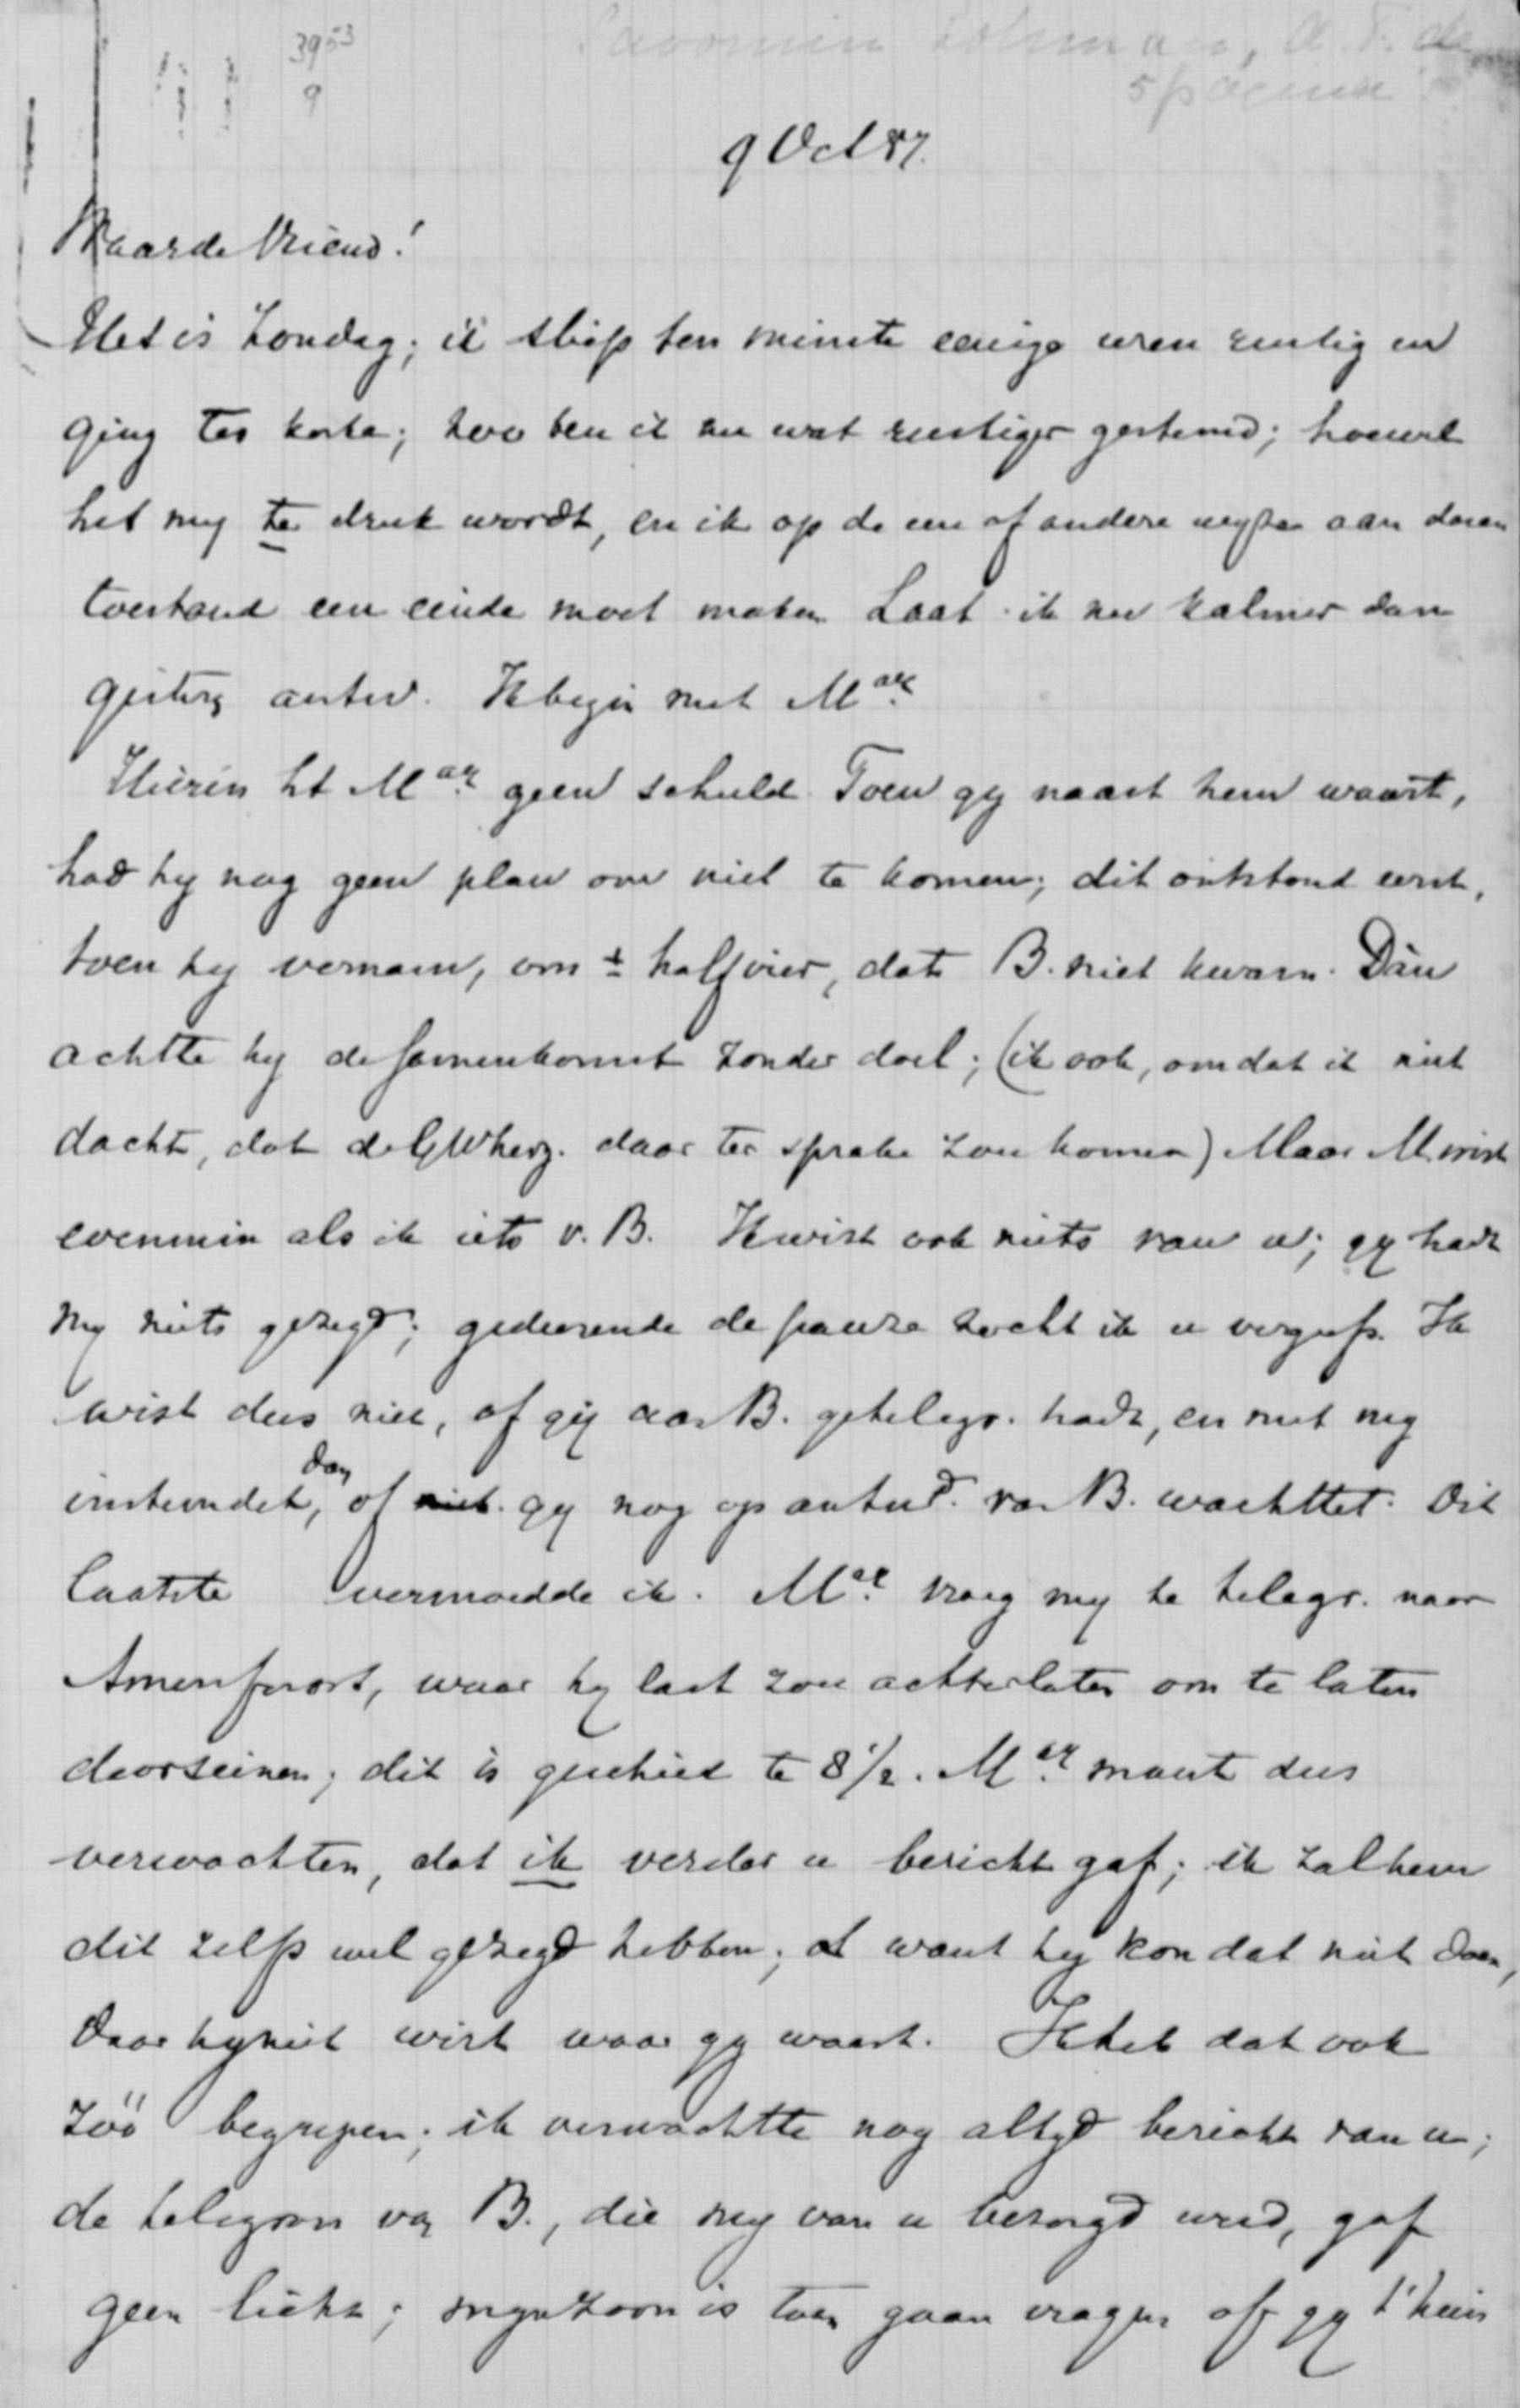 3953
9
Savornin Lohman, A. F. de
5 pagina's
9 Oct 87.
Waarde Vriend!
Het is Zondag; ik sliep ten minste eenige uren rustig en
ging ter kerke; zoo ben ik nu wat rustiger gestemd; hoewel
het my te druk wordt, en ik op de een of andere wyse aan dezen
toestand een einde moet maken. Laat ik nu kalmer dan
gisteren antw. Ik begin met Mac.
Hierin ht Mac. geen schuld. Toen gy naast hem waart,
had hy nog geen plan om niet te komen; dit ontstond eerst,
toen hy vernam, om ± half vier, dat B. niet kwam. Dàn
achtte hy de samenkomst zonder doel; (ik ook, omdat ik niet
dacht, dat de GWherz. daar ter sprake zou komen) Maar M. wist
evenmin als ik iets v. B. Ik wist ook niets van u; gy hadt
my niets gezegd; gedurende de pauze zocht ik u vergeefs. Ik
wist dus niet, of gij aan B. getelegr. hadt, en met my
instemdet, dan of niet gy nog op antwd. van B. wachttet. Dit
laatste vermoedde ik. Mac. vroeg my te telegr. naar
Amersfoort, waar hy last zou achterlaten om te laten
doorseinen; dit is geschied te 8 1/2. Mac. moest dus
verwachten, dat ik verder u bericht gaf; ik zal hem
dit zelfs wel gezegd hebben; want hy kon dat niet doen,
daar hy niet wist waar gy waart. Ik heb dat ook
zóó begrepen; ik verwachtte nog altyd bericht van u;
de telegram van B., die my van u bezorgd werd, gaf
geen licht; myn zoon is toen gaan vragen of gy t'huis